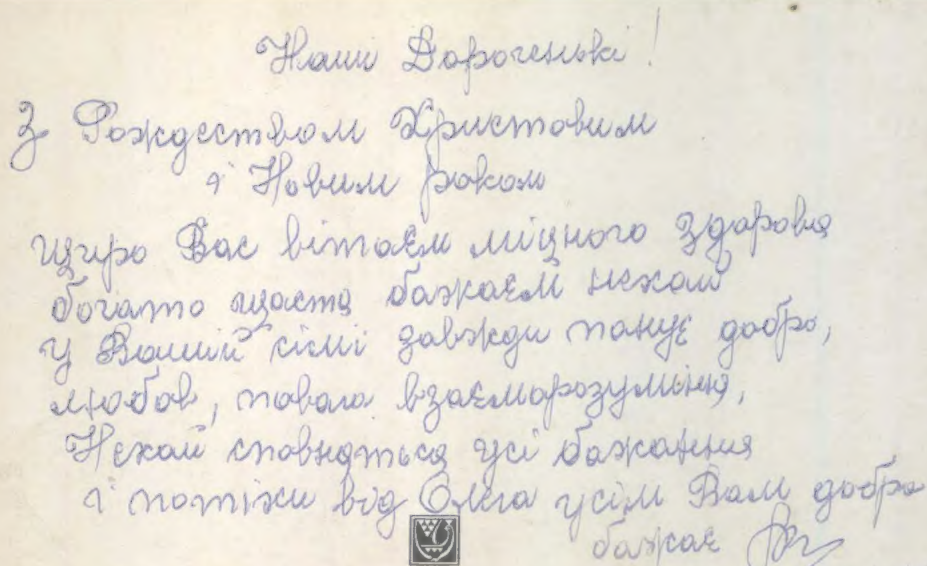 Наши Дорогенькі!
З Рождеством Христовим
і Новим роком
Щиро Вас вітаєм міцного здоровя
богато щастя бажаєм нехай
у Вашій сімі завжди панує добро,
любов, повага взаєморозуміня,
Нехай сповняться усі бажання
і потіхи від Олега усім Вам добра
бажає